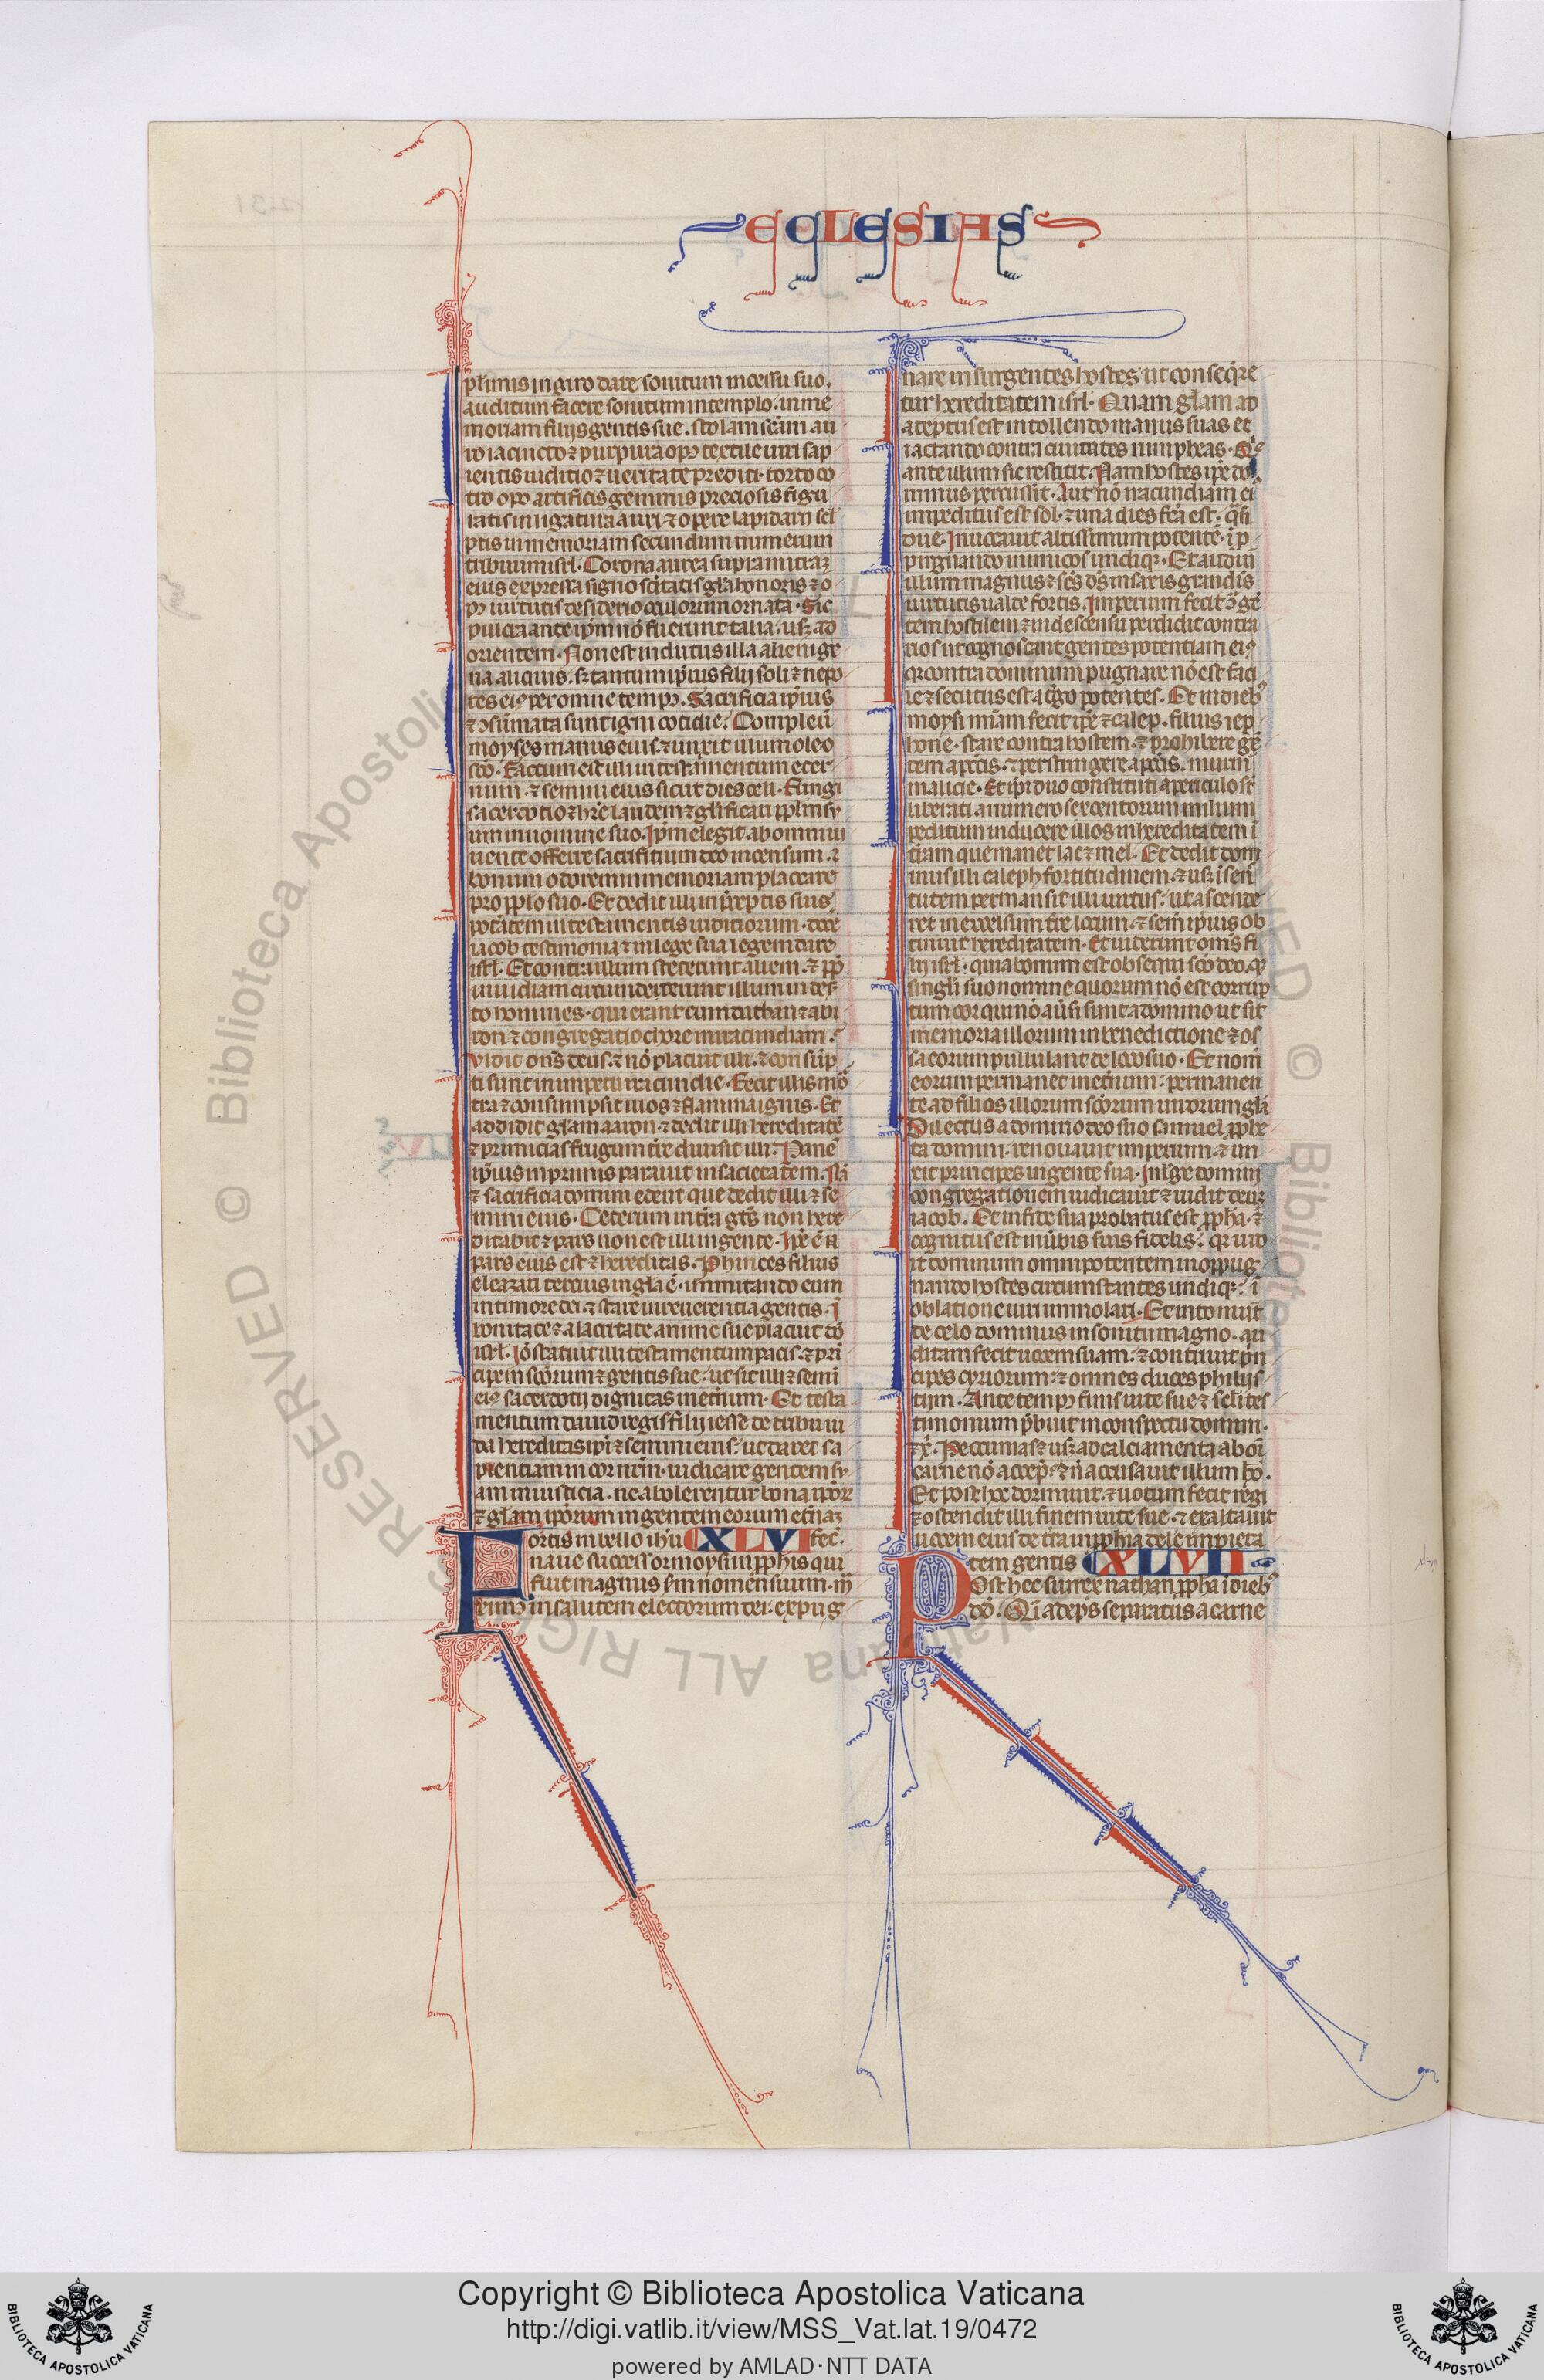 ECLESIAS
plurimis in giro dare sonitum incessu suo.
auditum facere sonitum in templo. in me
moriam filijs gentis sue. stolam scām au
ro iacincto ⁊ purpura opꝰ textile uiri sap
ientis iuditio ⁊ ueritate prediti. torto co
cco opꝰ artificis gemmis preciosis figu
ratis in ligatura auri ⁊ opere lapidarii scl
ptis in memoriam secundum numerum
tribuum isrl̄. Corona aurea supra mitrā
eius expressa signo scītatis gl̄a honoris ⁊ o
pꝰ uirtutis desiderio oculorum ornata. Sic
pulcra ante ip̄m nō fuerunt talia. usqꝫ ad
orientem. Non est indutus illa alienige
na aliquis. sꝫ tantum ip̄ius filij soli ⁊ nepo
tes eiꝰ per omne tempꝰ. Sacrificia ip̄ius
⁊ ꝯsūmata sunt igni cotidie. Compleuit
moyses manus eius. ⁊ unxit illum oleo
scō. Factum est illi in testamentum eter
num. ⁊ semini eius sicut dies celi. Fungi
sacerdotio ⁊ hr̄e laudem ⁊ gl̄ificare ppl̄m s
uum in nomine suo. Ip̄m elegit ab omni ui
uente offerre sacrifitium deo incensum. ⁊
bonum odorem in memoriam placare
pro ppl̄o suo. Et dedit illi in p̄ceptis suis
potātem in testamentis iuditiorum. docere
iacob testimonia ⁊ in lege sua legem dare
isrl̄. Et contra illum steterunt alieni. ⁊ ꝓp̄
inuidiam circumdederunt illum in des
to homines. qui erant cum dathan ⁊ abi
ron ⁊ congregatio chore in iracundiam.
Vidit dn̄s deus. ⁊ nō placuit illi. ⁊ consūp
ti sunt in impetu iracundie. Fecit illis mō
tra ⁊ consumpsit illos ⁊ flamma ignis. Et
addidit gl̄am aaron. ⁊ dedit illi hereditatē
⁊ primicias frugum tr̄e diuisit illi. Pane
ip̄ius in primis parauit in sacietatem. Nā
⁊ sacrificia domini edent que dedit illi ⁊ se
mini eius. Ceterum in tr̄a gētis non here
ditabit ⁊ pars non est illi in gente. Ip̄e ē .n.
pars eius est ⁊ hereditas. Phinees filius
eleazari tercius in gl̄a ē. in imitando eum
in timore dei. ⁊ stare in reuerentia gentis. I
bonitate ⁊ alacritate anime sue placuit dō
isrl̄. Iō statuit illi testamentum pacis. ⁊ pri
cipem scōrum ⁊ gentis sue. ut sit illi ⁊ semi
eiꝰ sacerdotij dignitas in eternum. Et testa
mentum dauid regis filij iesse de tribu iu
da hereditas ip̄i ⁊ semini eius. ut daret sa
pientiam in cor nr̄m. iudicare gentem su
am in iusticia. ne abolerentur bona ip̄oꝝ
⁊ gl̄am ip̄orum in gentem eorum eternā
Fortis in bello ihū XLVI fec̄.
naue successor moysi in ꝓphis qui
fuit magnus sm̄ nomen suum. m̄
ximꝰ in salutem electorum dei. expug
nare insurgentes hostes. ut conseqr̄e
tur hereditatem isrl̄. Quam gl̄am ad
ateptus est in tollendo manus suas et
iactando contra ciuitates numpheas. Qⁱs
ante illum sic restitit. Nam hostes ip̄e do
minus percussit. Aut nō iracundiam eiꝰ
impeditus est sol. ⁊ una dies fc̄a est. q̄si
due. Inuocauit altissimum potentē. ī p
pugnando inimicos undiqꝫ. Et audiui
illum magnus ⁊ scs̄ ds̄ in saxis grandīs
uirtutis ualde fortis. Impetum fecit ꝯ gē
tem hostilem ⁊ in descensu perdidit contra
rios ut cognoscant gentes potentiam eiꝰ
qꝛ contra dominum pugnare nō est faci
le ⁊ secutus est a tergo potentes. Et in diebꝰ
moysi miam fecit ip̄e ⁊ calep. filius iep
hone. stare contra hostem. ⁊ prohibere gē
tem a pcc̄is. ⁊ perstringere a pcc̄is. murm̄
malicie. Et ip̄i duo constituti a periculo st̄
liberati a numero sexcentorum milium
peditum inducere illos in hereditatem ī
tr̄am que manet lac ⁊ mel. Et dedit dom
inus illi caleph fortitudinem. ⁊ usqꝫ ī sen
tutem permansit illi uirtus. ut ascende
ret in excelsum tr̄e locum. ⁊ sem̄ ip̄ius ob
tinuit hereditatem. Et uiderunt om̄s fi
lij isrl̄. quia bonum est obsequi scō deo. qꝫ
singl̄i suo nomine quorum nō est corrup
tum cor qui nō aūsi sunt a domino ut sit
memoria illorum in benedictione ⁊ os
sa eorum pullulant de loco suo. Et nom̄
eorum permanet in eternum. permanen
te ad filios illorum scōrum uirorum gl̄a
Dilectus a domino deo suo samuel ꝓphe
ta domini. renouauit imperium. ⁊ un
xit principes in gente sua. In lege domini
congregationem iudicauit ⁊ uidit deus
iacob. Et in fide sua probatus est ꝓpha. ⁊
cognitus est in ūbis suis fidelis. qꝛ uid
it dominum omnipotentem in oppug
nando hostes circumstantes undiqꝫ. ī
oblatione uiri inmolati. Et intonuit
de celo dominus in sonitu magno. au
ditam fecit uocem suam. ⁊ contriuit p̄n
cipes tyriorum. ⁊ omnes duces philijs
tijm. Ante tempꝰ finis uite sue ⁊ seli tes
timonium p̄buit in conspectu domini.
⁊ x̄. Peccunias ⁊ usqꝫ ad calciamenta ab oī
carne nō accep̄. ⁊ n̄ accusauit illum hō.
Et post hoc dormiuit. ⁊ notum fecit regi
⁊ ostendit illi finem uite sue. ⁊ exaltauit
uocem eius de tr̄a in ꝓphia dele impieta
tem gentis XLVII
Post hec surrexit nathan ꝓpha ī diebꝰ
dd̄. Qī adeps separatus a carne
© Biblioteca Apostolica Vaticana ALL RIGHTS RESERVED
Copyright © Biblioteca Apostolica Vaticana
http://digi.vatlib.it/view/MSS_Vat.lat.19/0472
powered by AMLAD·NTT DATA
BIBLIOTECA APOSTOLICA VATICANA
BIBLIOTECA APOSTOLICA VATICANA